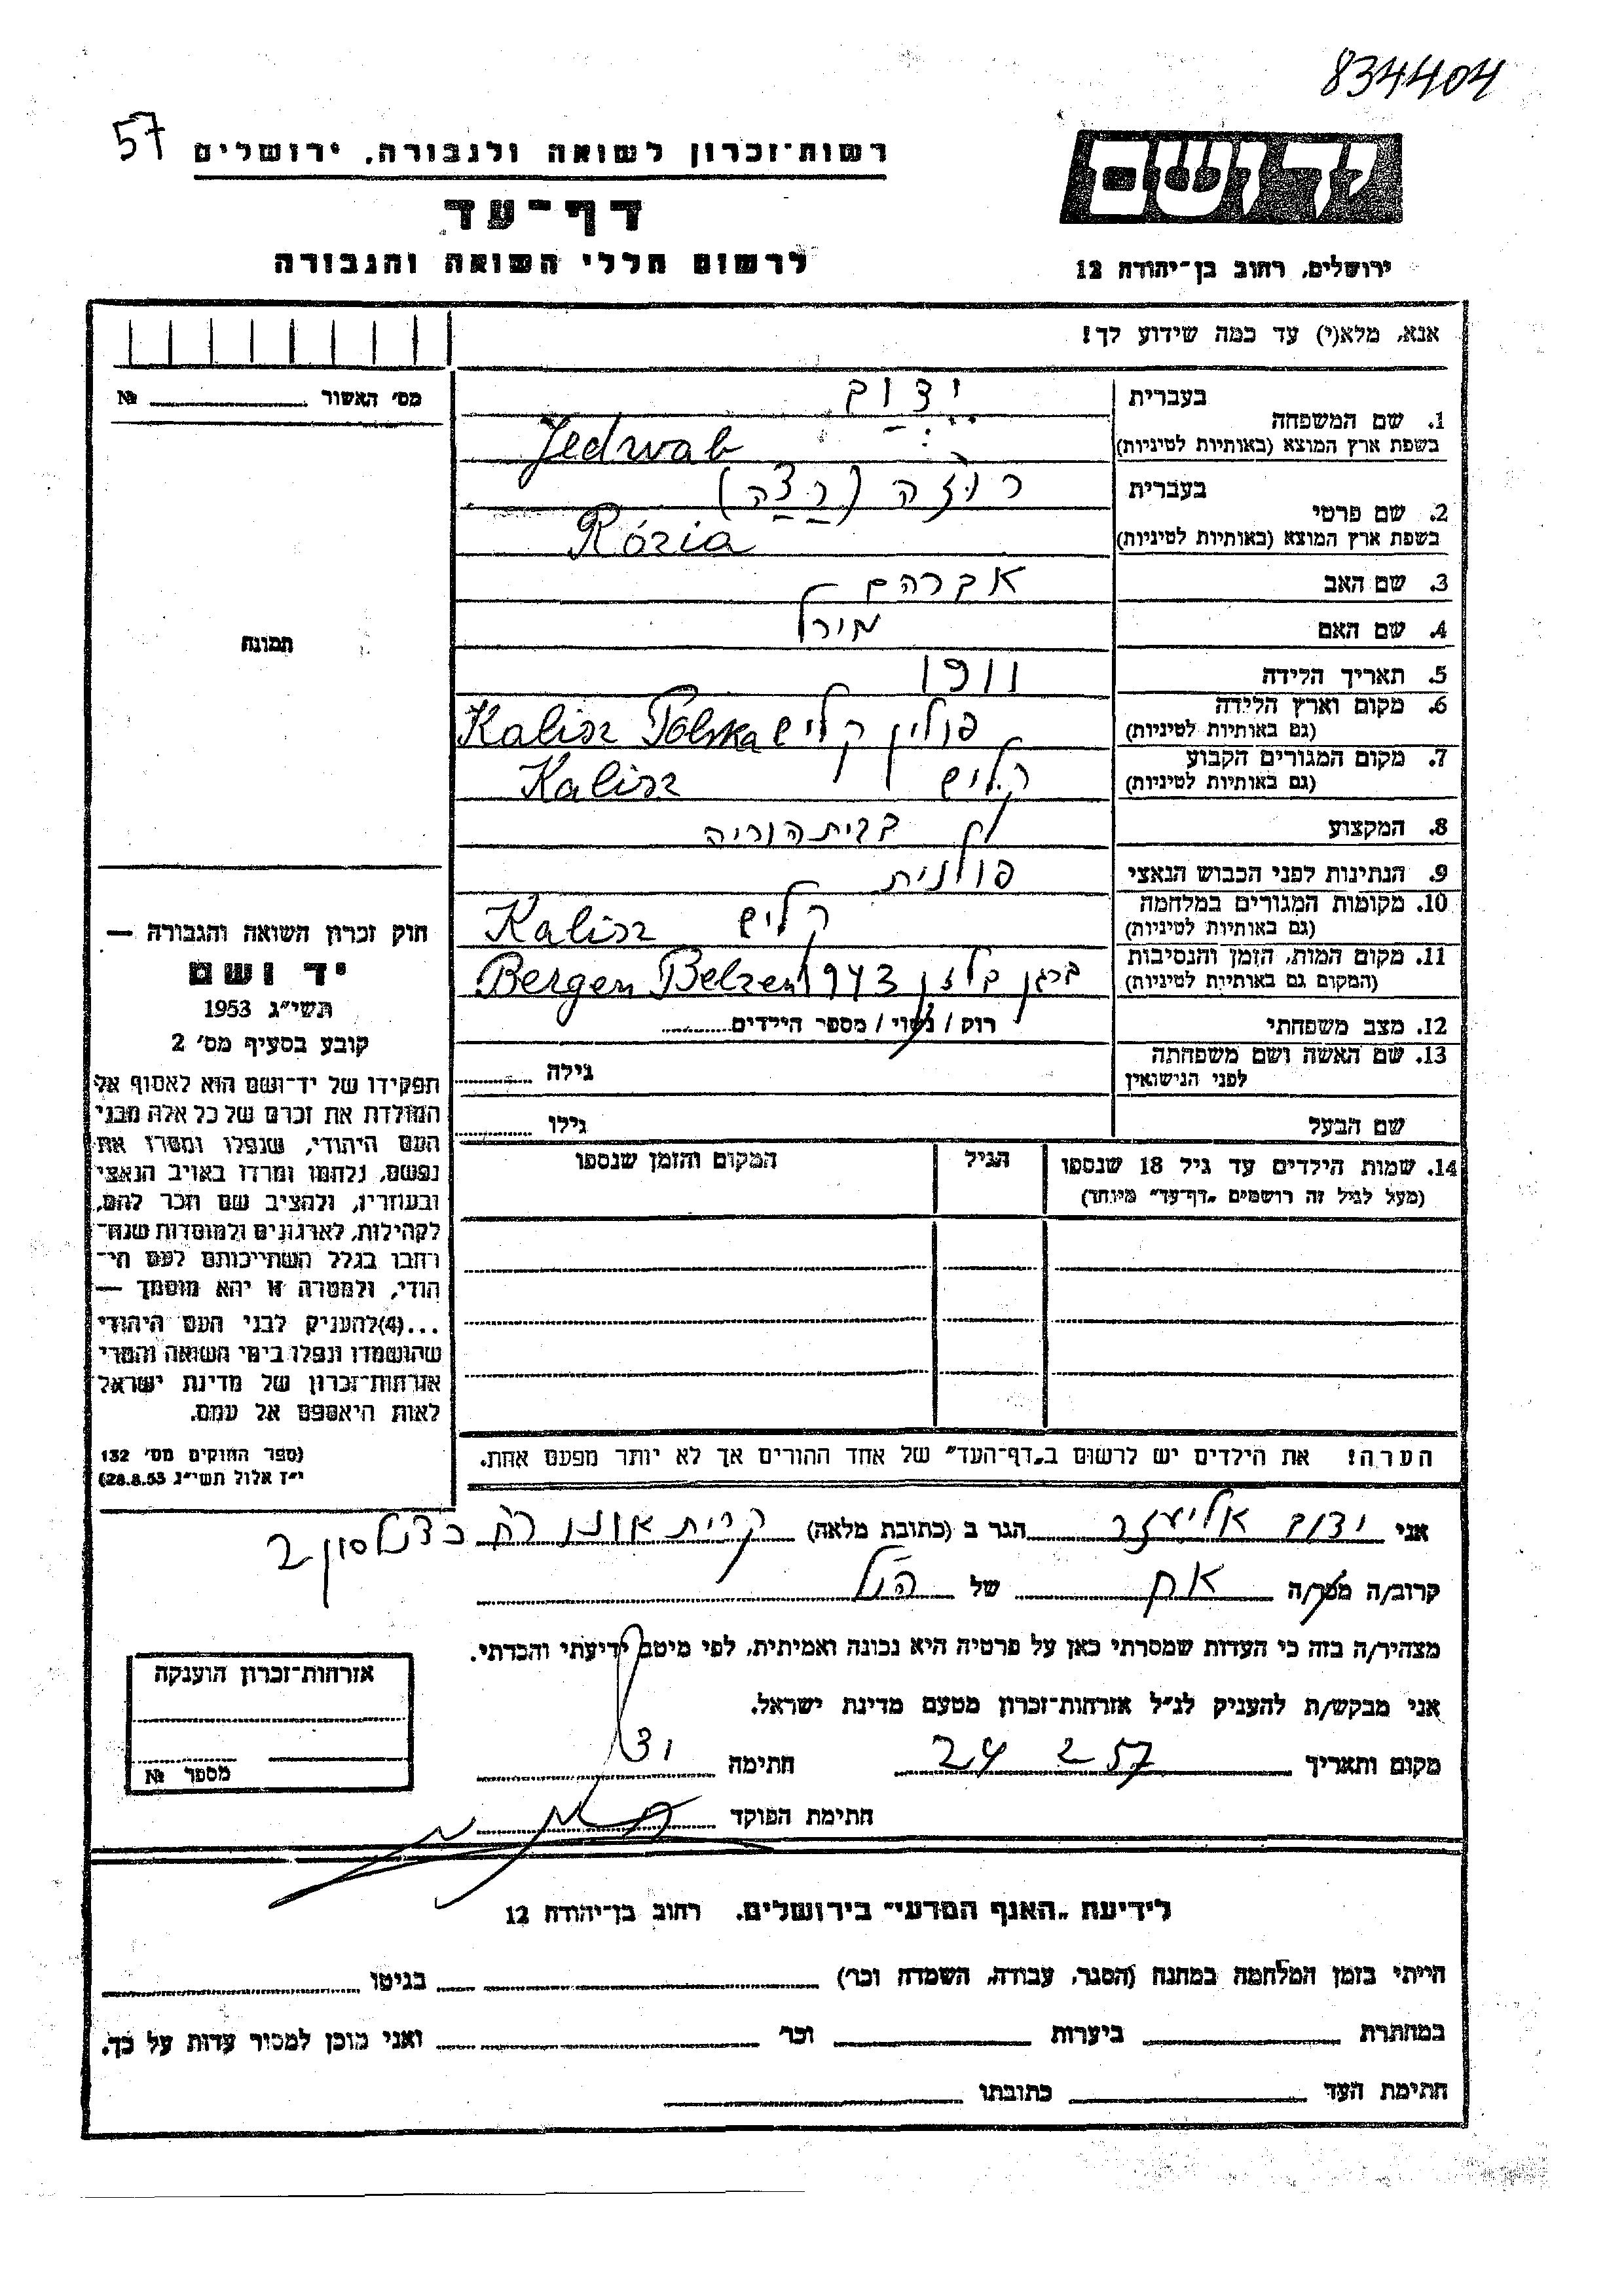 834404
57
יד ושם
רשות־זכרון לשואה ולגבורה, ירושלים
דף־עד
לרשום חללי השואה והגבורה
ירושלים, רחוב בן־יהודה 12
אנא, מלא(י) עד כמה שידוע לך!
מס' האשור № 
בעברית ידוב
1. שם המשפחה
בשפת ארץ המוצא (באותיות לטיניות) Jedwab
בעברית רוזה (רצה)
2. שם פרטי
בשפת ארץ המוצא (באותיות לטיניות) Rózia
3. שם האב אברהם
4. שם האם מירל
5. תאריך הלידה 1911
6. מקום וארץ הלידה פולין קליש Kalisz Polska
(גם באותיות לטיניות)
7. מקום המגורים הקבוע קליש Kalisz
(גם באותיות לטיניות)
8. המקצוע בבית הוריה
9. הנתינות לפני הכבוש הנאצי פולנית
10. מקומות המגורים במלחמה קליש Kalisz
(גם באותיות לטיניות)
11. מקום המות, הזמן והנסיבות ברגן בלזן 1943 Bergen Belzen
(המקום גם באותיות לטיניות)
12. מצב משפחתי רוק / נשוי / מספר הילדים
13. שם האשה ושם משפחתה
לפני הנישואין גילה
שם הבעל גילו
14. שמות הילדים עד גיל 18 שנספו הגיל המקום והזמן שנספו
(מעל לגיל זה רושמים „דף־עד" מיוחד)
הערה! את הילדים יש לרשום ב„דף־העד" של אחד ההורים אך לא יותר מפעם אחת.
תמונה
חוק זכרון השואה והגבורה —
יד ושם
תשי״ג 1953
קובע בסעיף מס' 2
תפקידו של יד־ושם הוא לאסוף אל
המולדת את זכרם של כל אלה מבני
העם היהודי, שנפלו ומסרו את
נפשם, נלחמו ומרדו באויב הנאצי
ובעוזריו, ולהציב שם וזכר להם,
לקהילות, לארגונים ולמוסדות שנח־
רבו בגלל השתייכותם לעם הי־
הודי, ולמטרה זו יהא מוסמך —
...(4)להעניק לבני העם היהודי
שהושמדו ונפלו בימי השואה והמרי
אזרחות־זכרון של מדינת ישראל
לאות היאספם אל עמם.
(ספר החוקים מס' 132
י״ז אלול תשי״ג 28.8.53)
אני ידוב אליעזר הגר ב (כתובת מלאה) קרית אונו רח 2
קרוב/ה מכר/ה אח של הנ״ל
מצהיר/ה בזה כי העדות שמסרתי כאן על פרטיה היא נכונה ואמיתית, לפי מיטב ידיעתי והכרתי.
אני מבקש/ת להעניק לנ״ל אזרחות־זכרון מטעם מדינת ישראל.
מקום ותאריך 24 2 57 חתימה
חתימת הפוקד
אזרחות־זכרון הוענקה
מספר №
לידיעת „האגף המדעי" בירושלים, רחוב בן־יהודה 12
הייתי בזמן המלחמה במחנה (הסגר, עבודה, השמדה וכו') בגיטו
במחתרת ביערות וכו' ואני מוכן למסור עדות על כך.
חתימת העד כתובתו